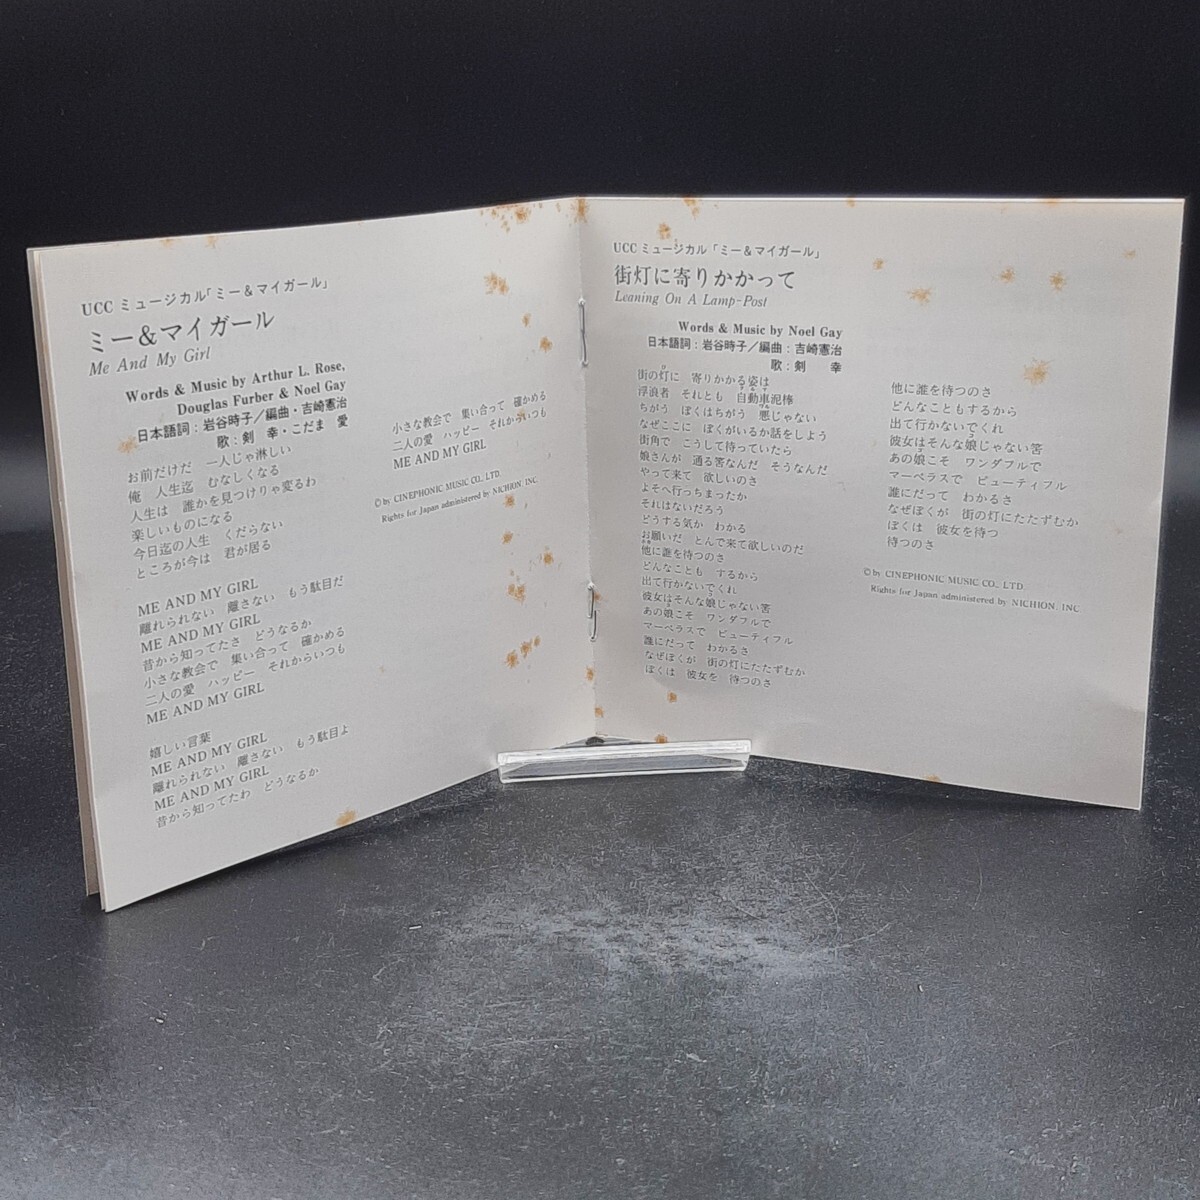 UCC ミュージカル「ミー&マイガール」
ミー&マイガール
Me And My Girl
Words & Music by Arthur L. Rose,
Douglas Furber & Noel Gay
日本語詞：岩谷時子／編曲・吉崎憲治
歌：剣 幸・こだま 愛
お前だけだ 一人じゃ淋しい
俺 人生迄 むなしくなる
人生は 誰かを見つけりゃ変るわ
楽しいものになる
今日迄の人生 くだらない
ところが今は 君が居る
ME AND MY GIRL
離れられない 離さない もう駄目だ
ME AND MY GIRL
昔から知ってたさ どうなるか
小さな教会で 集い合って 確かめる
二人の愛 ハッピー それからいつも
ME AND MY GIRL
嬉しい言葉
ME AND MY GIRL
離れられない 離さない もう駄目よ
ME AND MY GIRL
昔から知ってたわ どうなるか
小さな教会で 集い合って 確かめる
二人の愛 ハッピー それからいつも
ME AND MY GIRL
©by CINEPHONIC MUSIC CO., LTD.
Rights for Japan administered by NICHION, INC.
UCC ミュージカル「ミー&マイガール」
街灯に寄りかかって
Leaning On A Lamp-Post
Words & Music by Noel Gay
日本語詞：岩谷時子／編曲：吉崎憲治
歌：剣 幸
街の灯に 寄りかかる姿は
浮浪者 それとも 自動車泥棒
ちがう ぼくはちがう 悪じゃない
なぜここに ぼくがいるか話をしよう
街角で こうして待っていたら
娘さんが 通る筈なんだ そうなんだ
やって来て 欲しいのさ
よそへ行っちまったか
それはないだろう
どうする気か わかる
お願いだ とんで来て欲しいのだ
他に誰を待つのさ
どんなことも するから
出て行かないでくれ
彼女はそんな娘じゃない筈
あの娘こそ ワンダフルで
マーベラスで ビューティフル
誰にだって わかるさ
なぜぼくが 街の灯にたたずむか
ぼくは 彼女を 待つのさ
他に誰を待つのさ
どんなこともするから
出て行かないでくれ
彼女はそんな娘じゃない筈
あの娘こそ ワンダフルで
マーベラスで ビューティフル
誰にだって わかるさ
なぜぼくが 街の灯にたたずむか
ぼくは 彼女を待つ
待つのさ
©by CINEPHONIC MUSIC CO., LTD.
Rights for Japan administered by NICHION, INC.